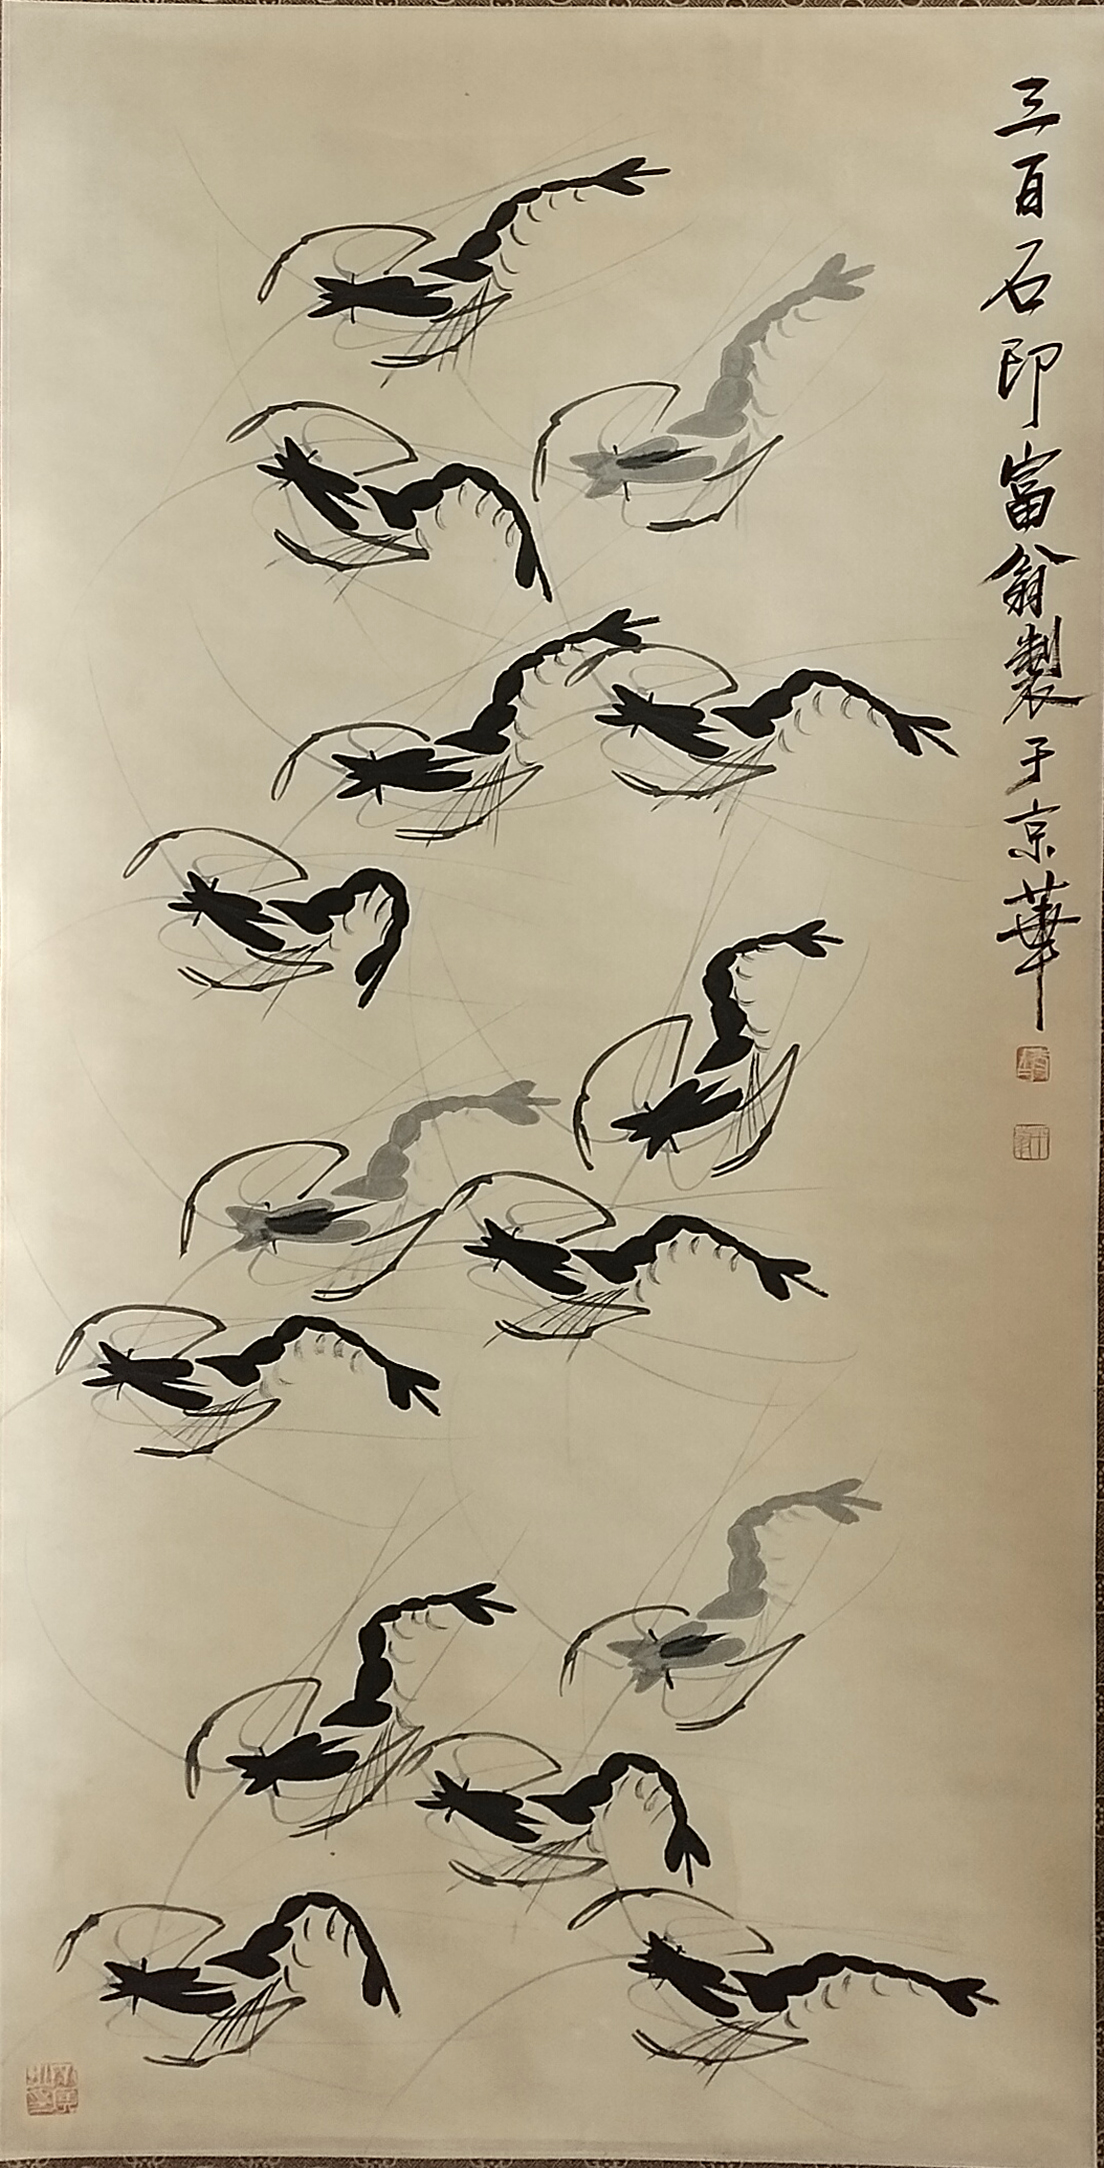 三百石印富翁製于京華